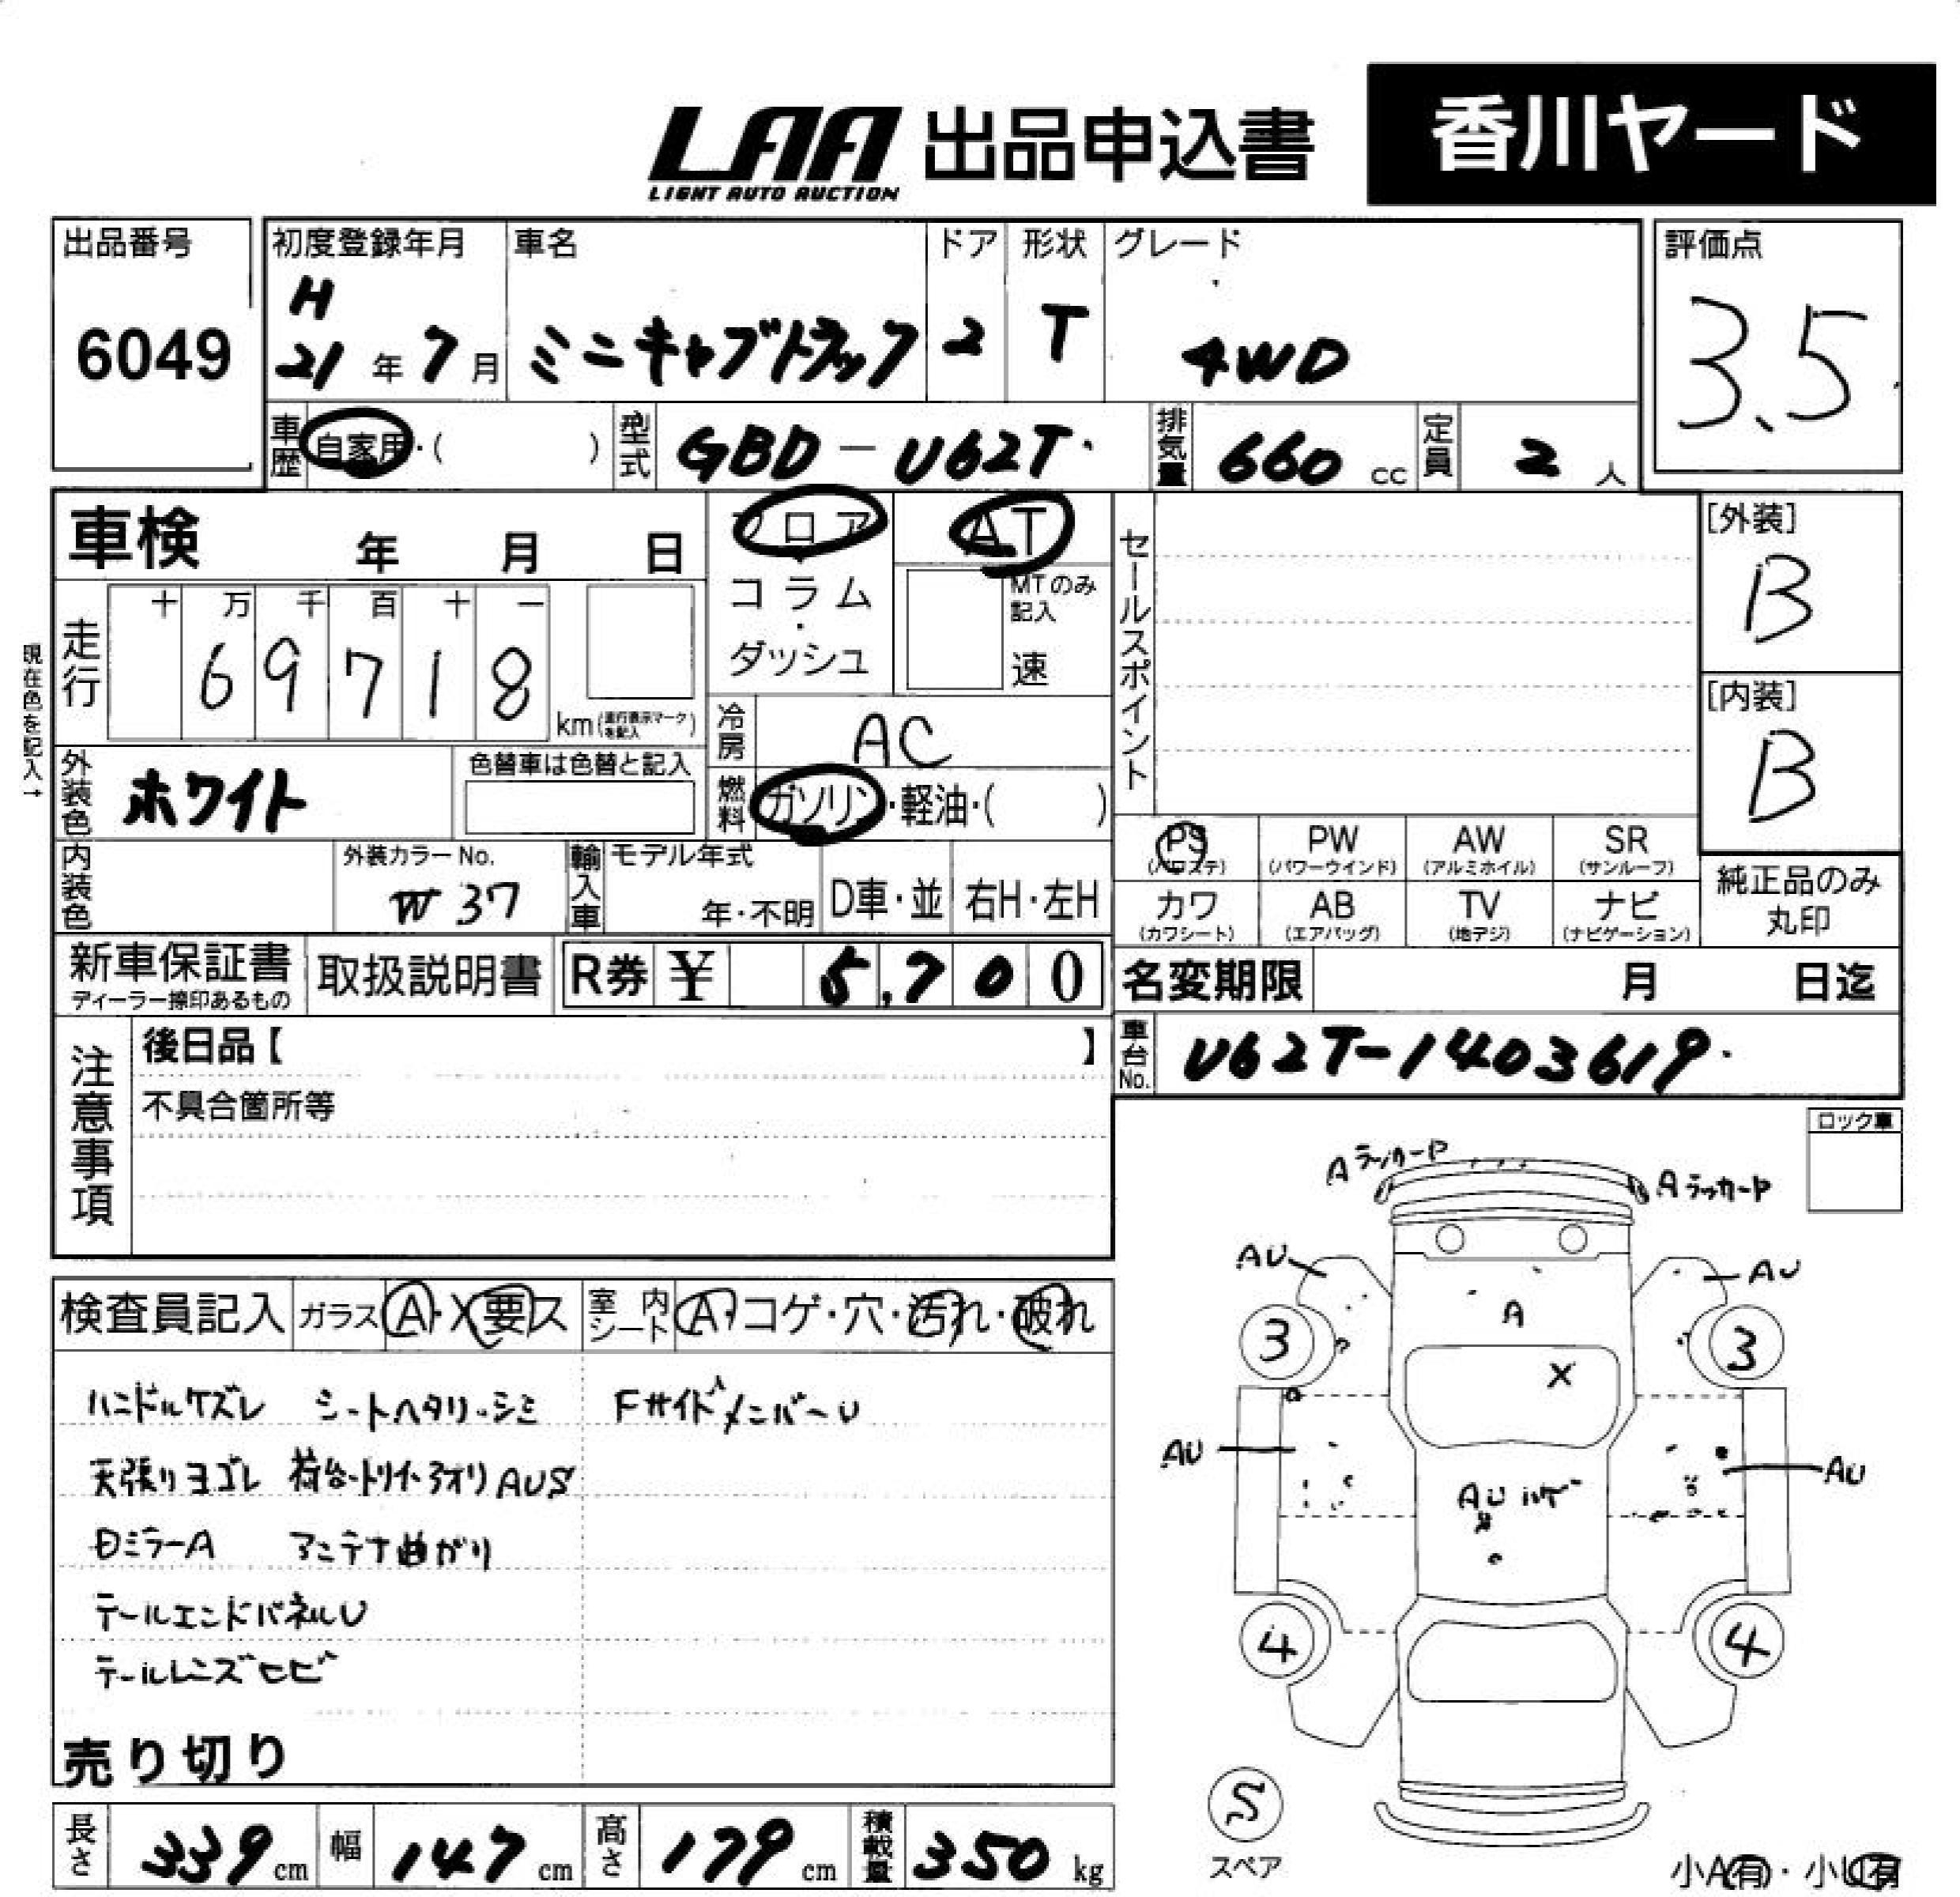 LAA 出品申込書 香川ヤード
LIGHT AUTO AUCTION
出品番号 初度登録年月 車名 ドア 形状 グレード 評価点
6049 H 21年 7月 ミニキャブトラック 2 T 4WD 3.5
車歴 自家用・( ) 型式 GBD-U62T 排気量 660 cc 定員 2 人
車検 年 月 日 フロア・コラム・ダッシュ AT
MTのみ記入 速
セールスポイント
[外装] B
[内装] B
走行 十 万 千 百 十 一
69718 km(走行表示マークを記入)
現在色を記入→
冷房 AC
外装色 ホワイト 色替車は色替と記入
燃料 ガソリン・軽油・( )
内装色 外装カラーNo. W37 輸入車 モデル年式 年・不明 D車・並 右H・左H
PS(パワステ) PW(パワーウインド) AW(アルミホイル) SR(サンルーフ)
カワ(カワシート) AB(エアバッグ) TV(地デジ) ナビ(ナビゲーション)
純正品のみ丸印
新車保証書 ディーラー捺印あるもの 取扱説明書 R券 ¥ 5,700
名変期限 月 日迄
車台No. U62T-1403619
注意事項 後日品【 】
不具合箇所等
ロック車
検査員記入 ガラス A・X要ス 室内シート A・コゲ・穴・汚れ・破れ
ハンドルケズレ シートヘタリ・シミ FサイドメンバーU
天張りヨゴレ 荷台・トリイ・アオリAUS
Dミラー A アンテナ曲がり
テールエンドパネルU
テールレンズヒビ
売り切り
長さ 339 cm 幅 147 cm 高さ 179 cm 積載量 350 kg
AラッカーP Aラッカーp
AU AU
A
3 3
X
AU AU
AUハゲ
4 4
S
スペア
小A有・小U有